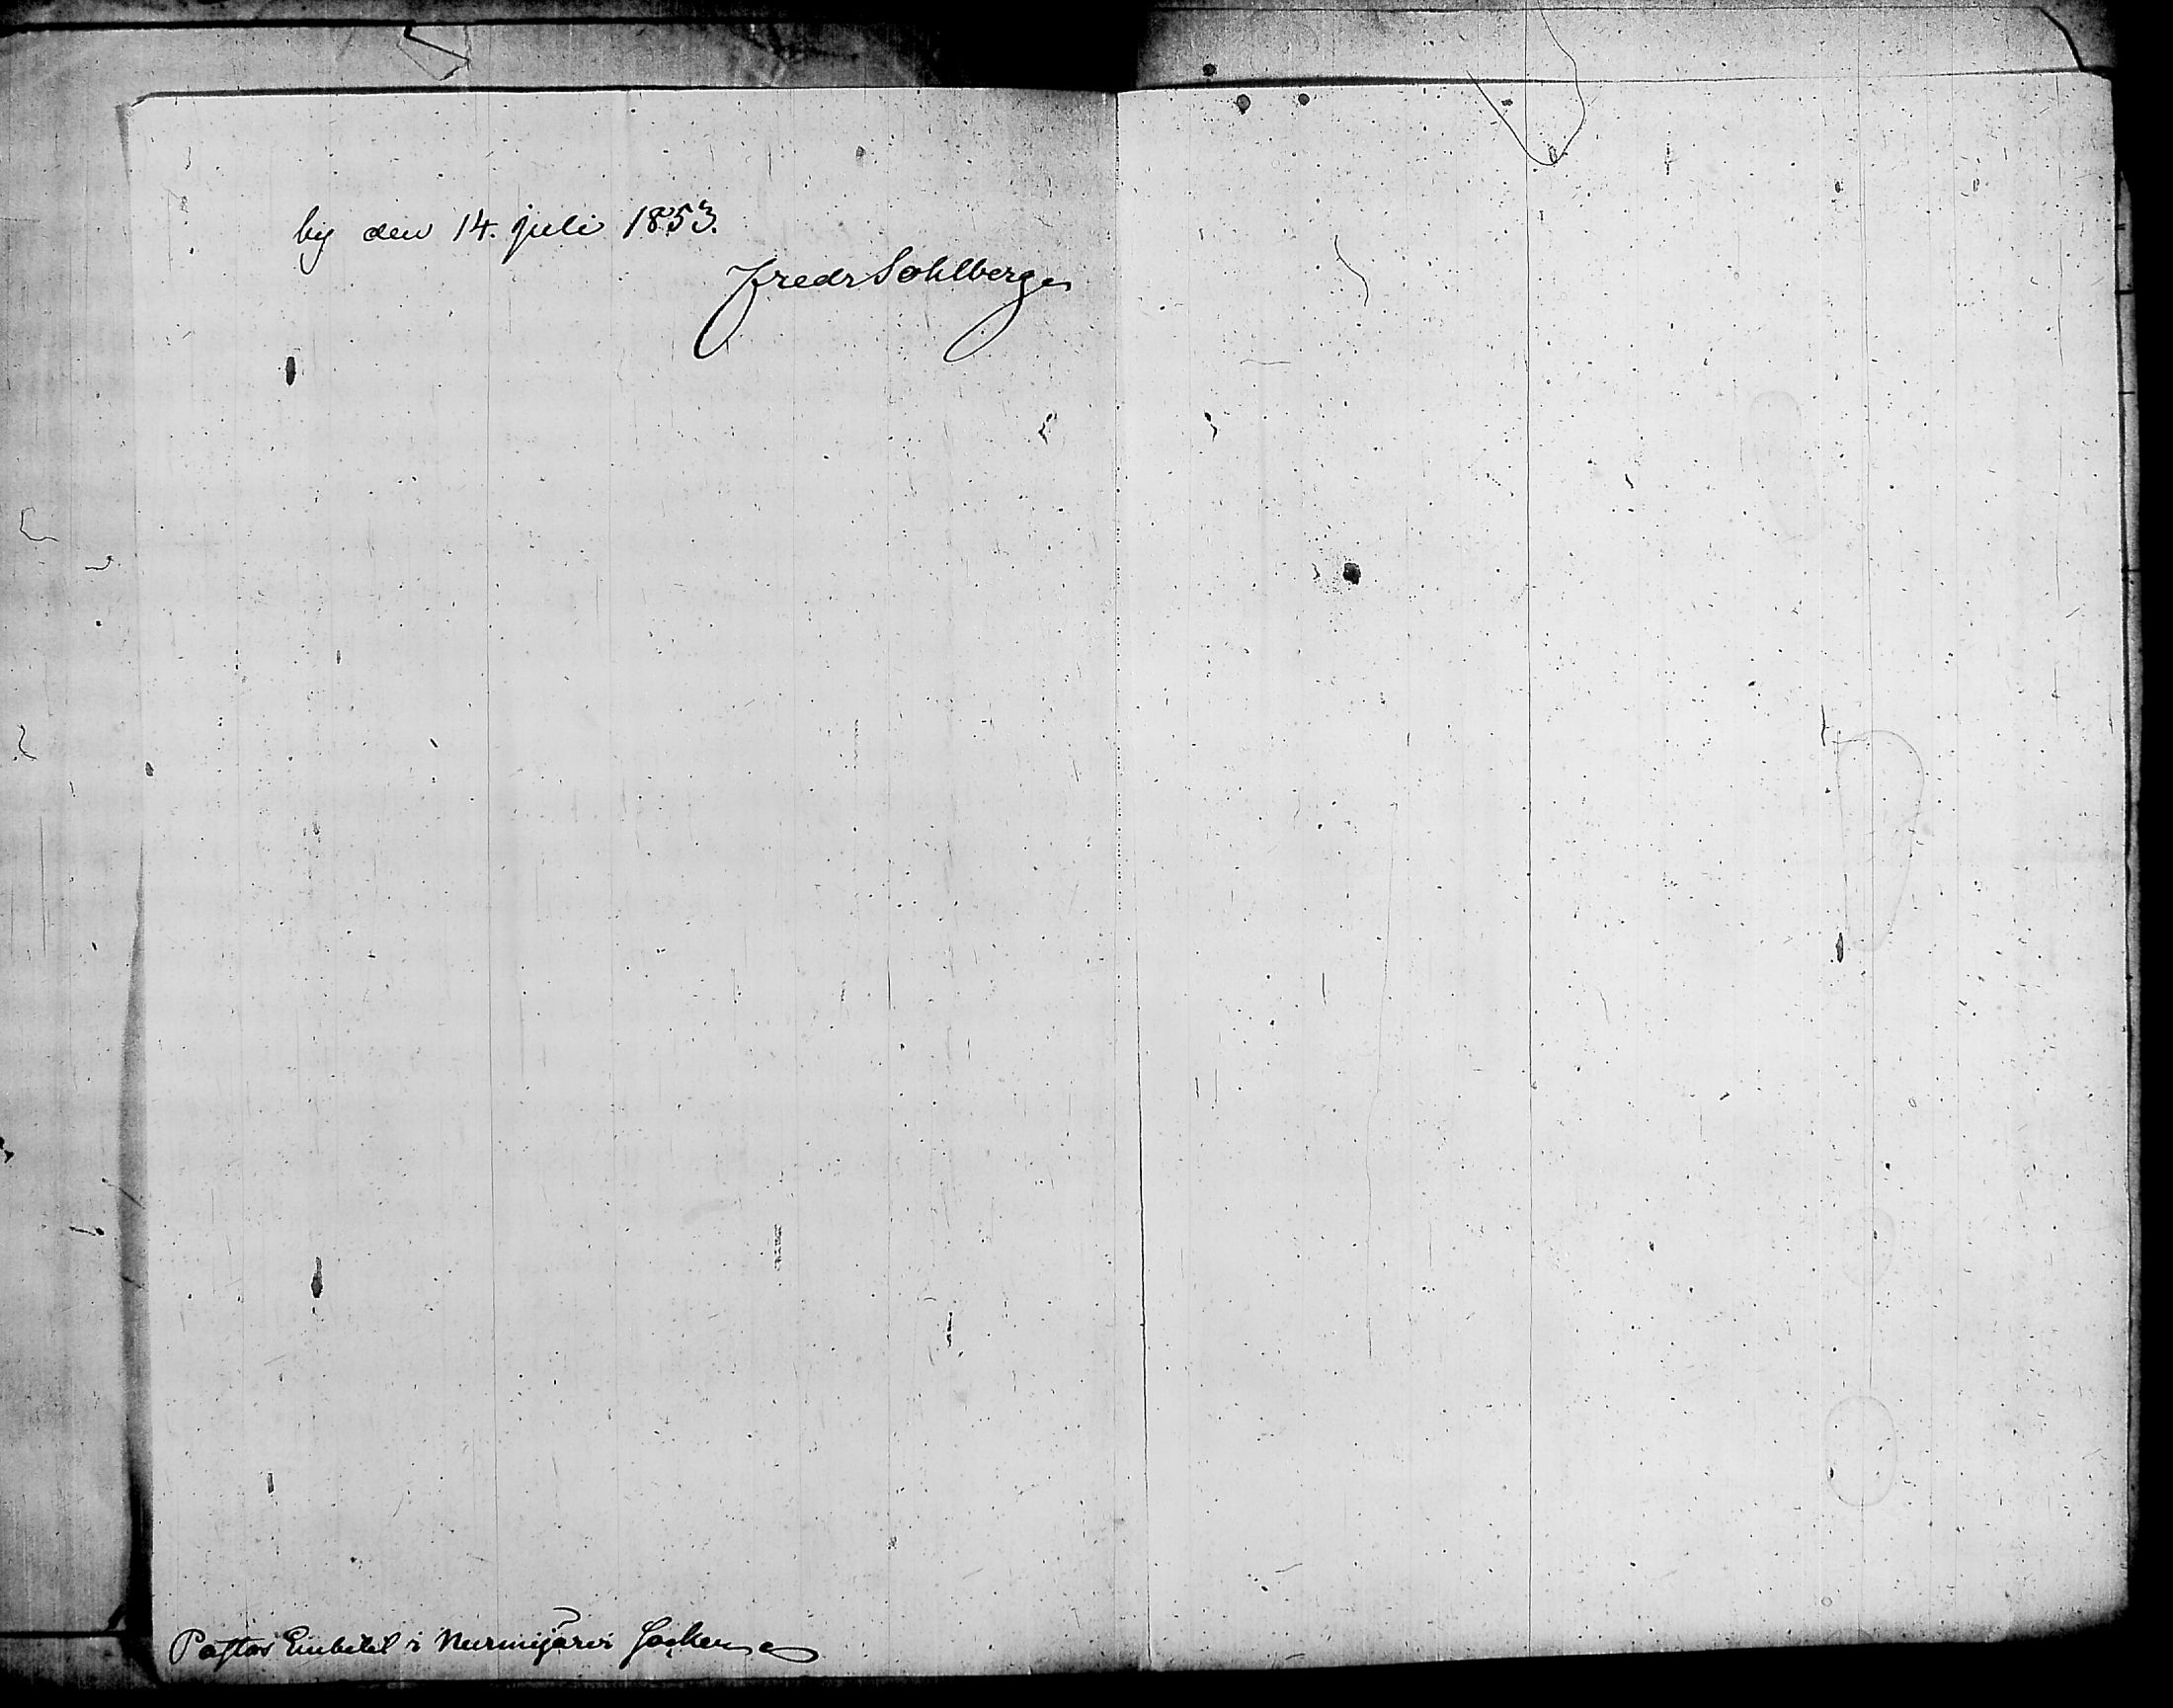 by den 14. juli 1853.
Fredr Sohlberg
Pastors Embetet i Nurmijärvi Socken